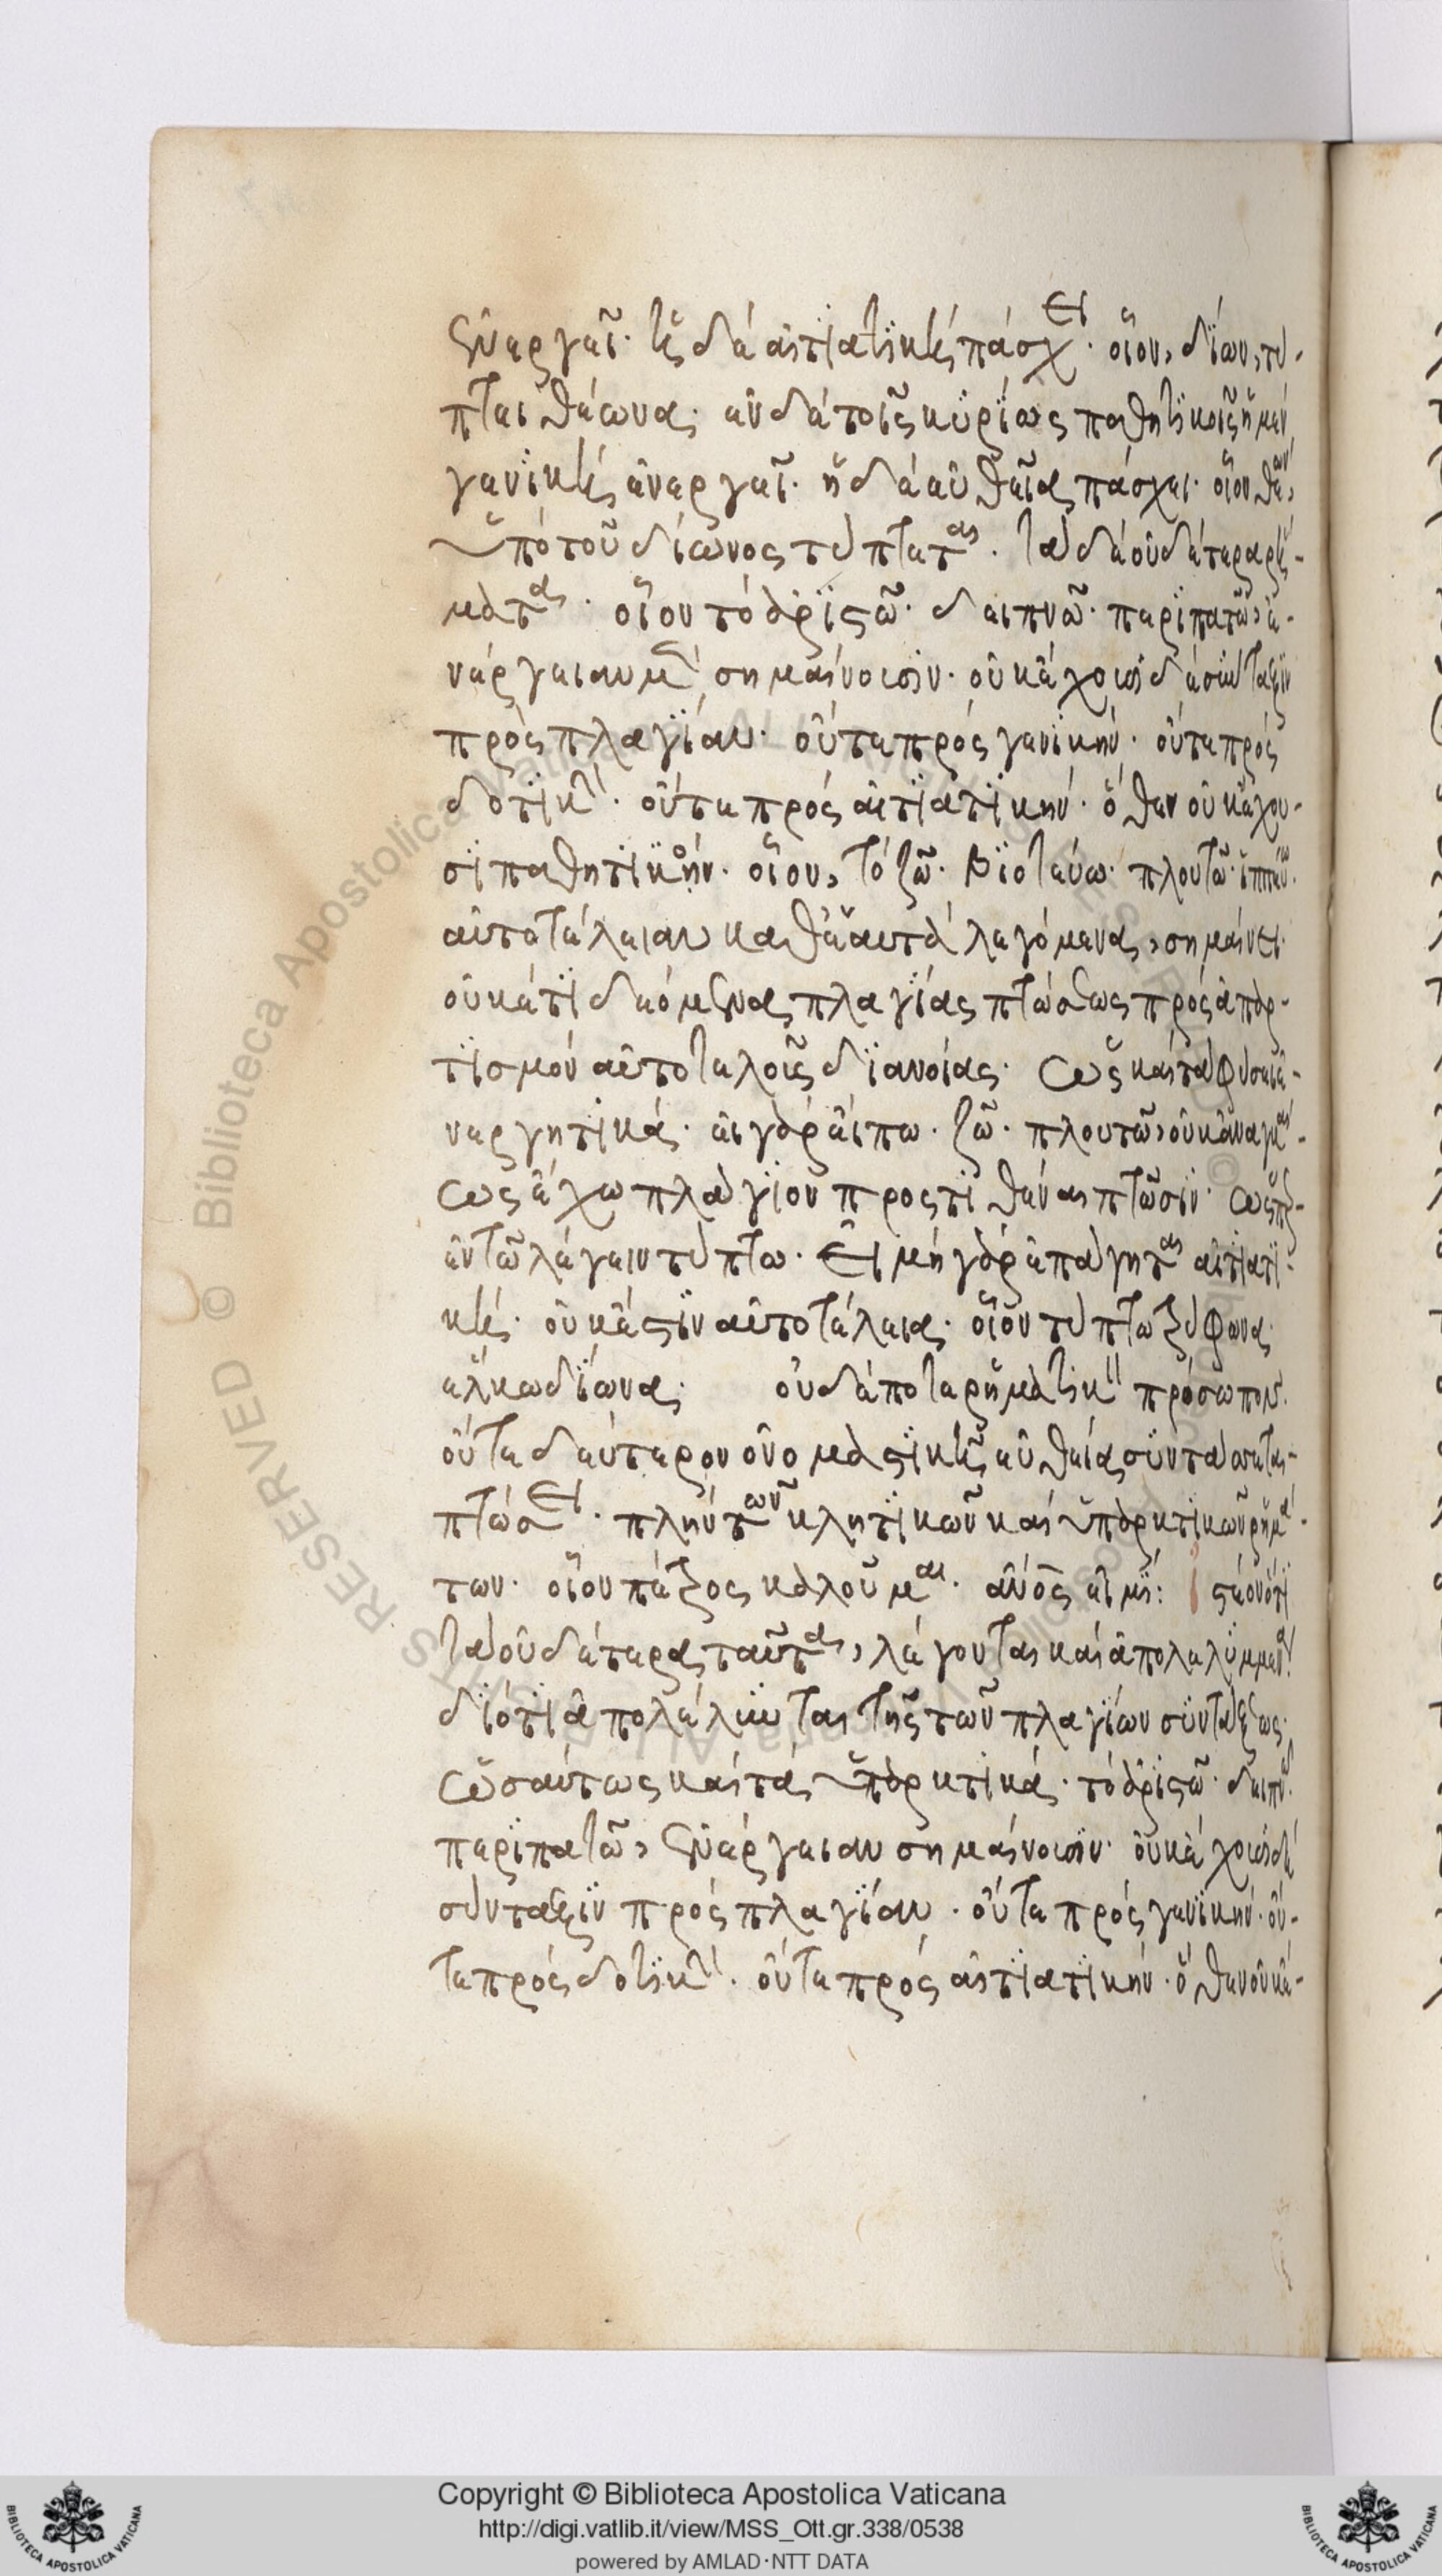 ἐνεργεῖ· τῆς δὲ αἰτιατικῆς πάσχει· οἷον, δίων, τύ-
πτει θέωνα· ἐν δὲ τοῖς κυρίως παθητικοῖς ἡ μὲν
γενικὴ ἐνεργεῖ· ἡ δὲ εὐθεῖα πάσχει· οἷον θέων
ὑπὸ τοῦ δίωνος τύπτεται. τὰ δὲ οὐδέτερα ῥή-
ματα· οἷον τὸ ἀριστῶ· δειπνῶ· περιπατῶ, ἐ-
νέργειαν μὲν σημαίνουσιν· οὐκ ἔχουσι δὲ σύνταξιν
πρὸς πλαγίαν· οὔτε πρὸς γενικήν· οὔτε πρὸς
δοτικήν· οὔτε πρὸς αἰτιατικήν· ὅθεν οὐκ ἔχου-
σι παθητικόν· οἷον, τὸ ζῶ· βιοτεύω· πλουτῶ· ἱππεύω·
αὐτοτέλειαν καθ' ἑαυτὰ λεγόμενα, σημαίνει·
οὐκέτι δεόμενα πλαγίας πτώσεως πρὸς ἀπαρ-
τισμὸν αὐτοτελοῦς διανοίας· ὡς καὶ τὰ φύσει ἐ-
νεργητικά· εἰ γὰρ εἴπω· ζῶ· πλουτῶ, οὐκ ἀναγκαί-
ως ἔχω πλάγιον προστιθέναι πτῶσιν· ὥσπερ
ἐν τῶ λέγειν τύπτω· Εἰ μὴ γὰρ ἐπάγηται αἰτιατι-
κή· οὐκ ἔστιν αὐτοτέλεια· οἷον τύπτω ξύφωνα·
ἕλκω δίωνα· οὐδέποτε ῥηματικὸν πρόσωπον·
οὔτε δεύτερον ὀνομαστικῆς εὐθείας συντάσσεται
πτώσει· πλὴν τῶν κλητικῶν καὶ ὑπαρκτικῶν ῥημά-
των· οἷον πέζος καλοῦμαι· ἄνος εἰμί: στέον ὅτι
τὰ οὐδέτερα ταῦτα, λέγονται καὶ ἀπολελυμμένα·
διότι ἀπολέλυνται τῆς τῶν πλαγίων συντάξεως·
ὡσαύτως καὶ τὰ ὑπαρκτικά· τὸ ἀριστῶ· δειπνῶ·
περιπατῶ, ἐνέργειαν σημαίνουσιν· οὐκ ἔχουσι δὲ
σύνταξιν πρὸς πλαγίαν· οὔτε πρὸς γενικήν· οὔ-
τε πρὸς δοτικήν· οὔτε πρὸς αἰτιατικήν· ὅθεν οὐκ ἔ-
Copyright © Biblioteca Apostolica Vaticana
http://digi.vatlib.it/view/MSS_Ott.gr.338/0538
powered by AMLAD·NTT DATA